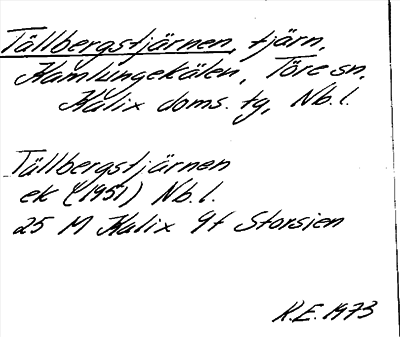 Tällbergstjärnen, tjärn,
Kamlungekälen, Töre sn,
Kalix doms. tg, Nb. l.
Tällbergstjärnen
ek (1951) Nb. l.
25 M Kalix 9f Storsien
R.E. 1973